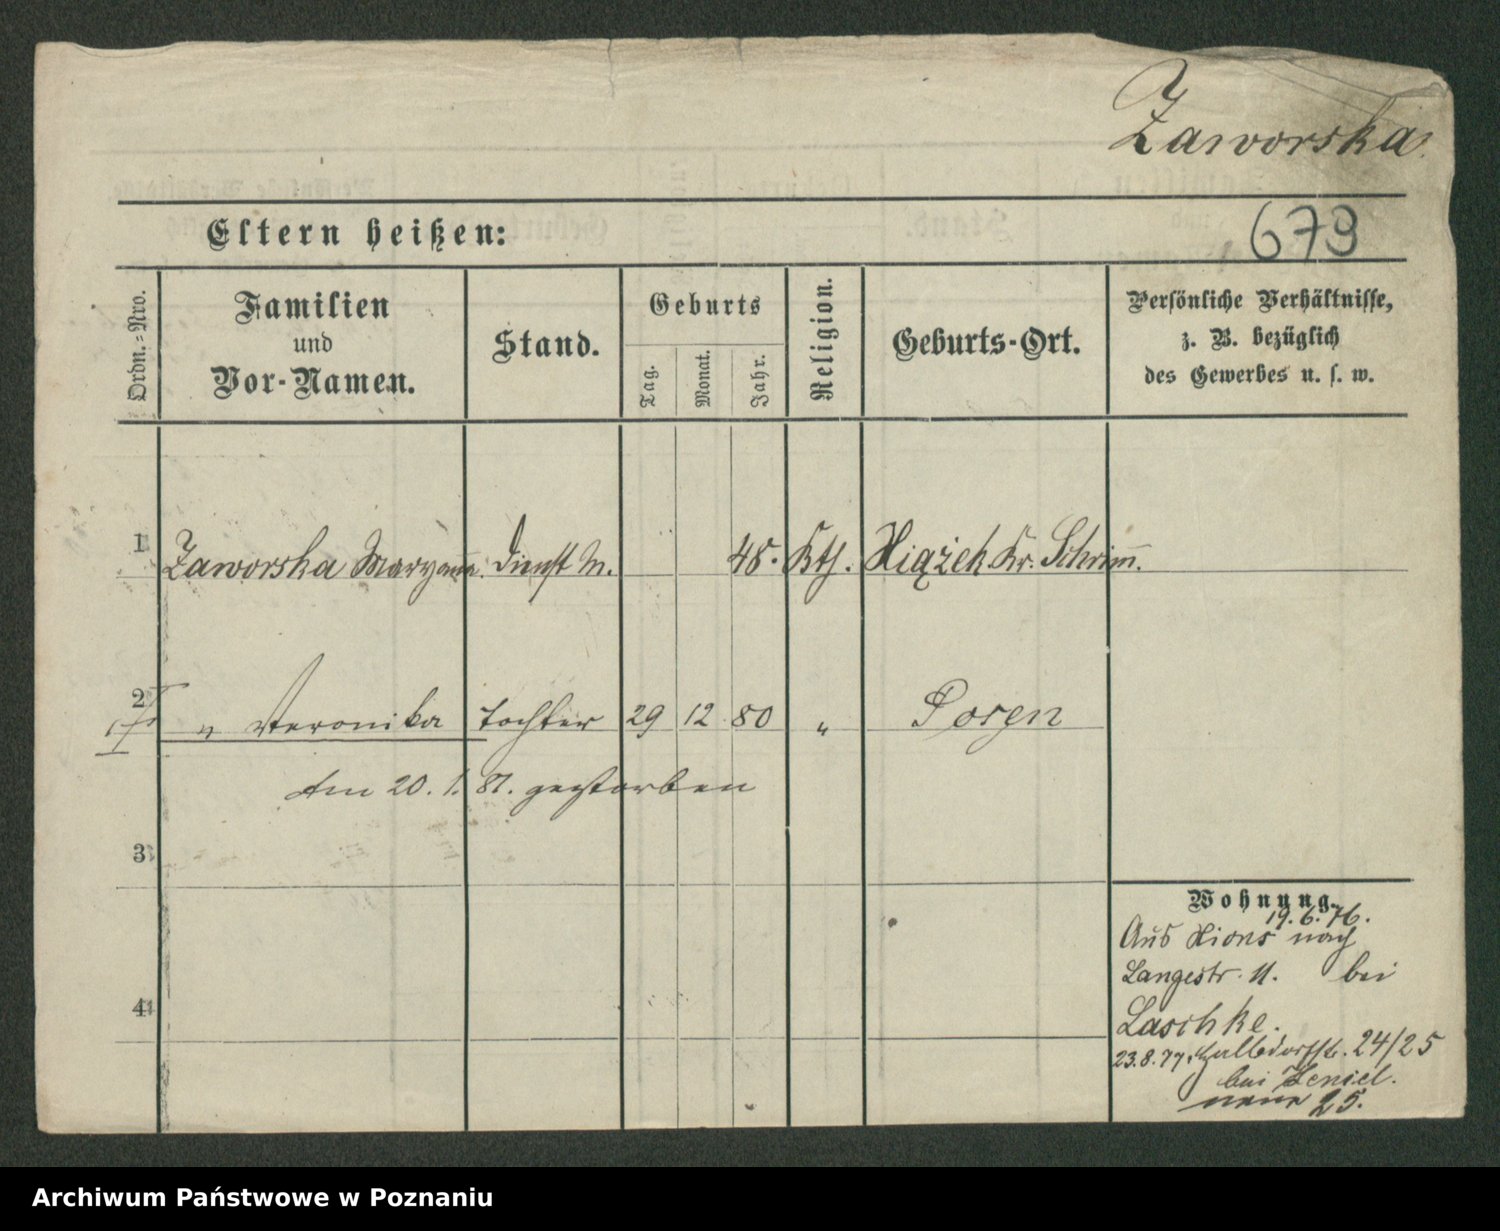 Zaworska.
Eltern heißen:
679
Ordn.-Nro.
Familien
und
Vor-Namen.
Stand.
Geburts
Tag.
Monat.
Jahr.
Religion.
Geburts-Ort.
Persönliche Verhältnisse,
z. B. bezüglich
des Gewerbes u. s. w.
1 Zaworska Maryann. Dienst M. 48. Kth. Xiążek Kr. Schrim̅.
2 " Veronika Tochter 29 12 80 " Posen
Am 20. 1. 81. gestorben
3
4
Wohnung.
19. 6. 76.
Aus Xions nach
Langestr. 11. bei
Laschke.
23.8.77. Halbdorfstr. 24/25
bei
25.
Archiwum Państwowe w Poznaniu